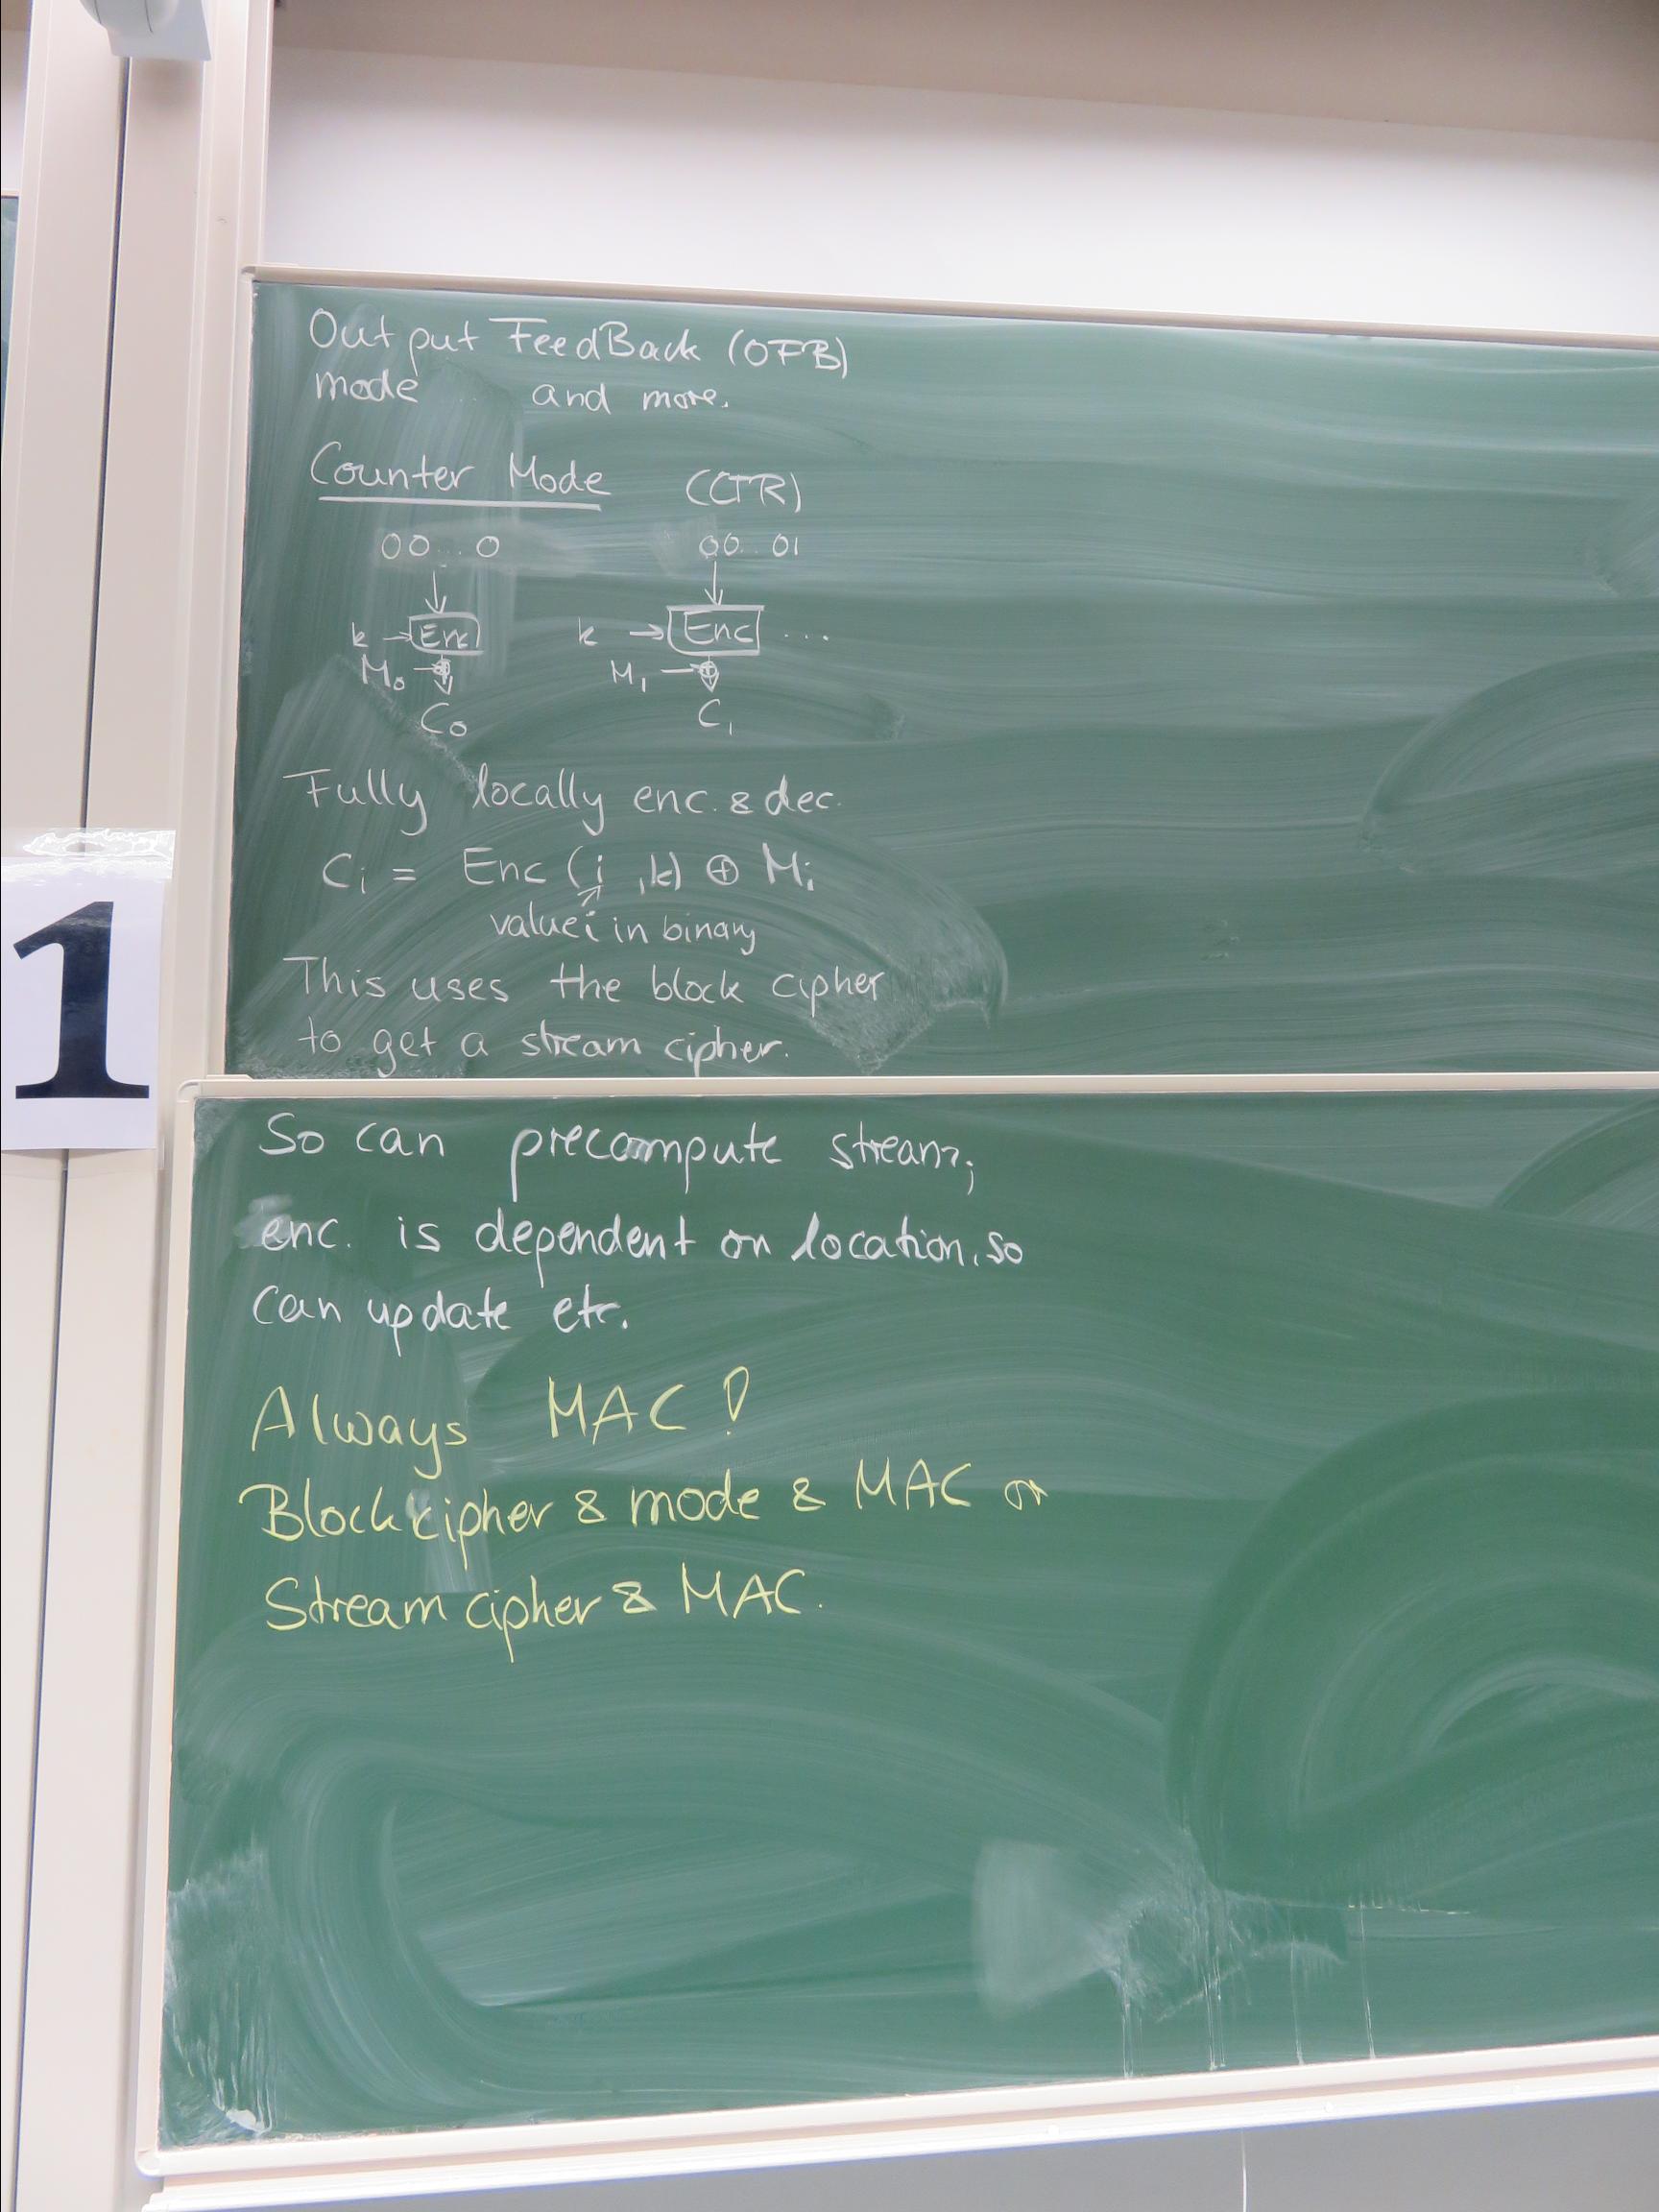 Output FeedBack (OFB)
mode and more.
Counter Mode (CTR)
00...0 00..01
k → Enc k → Enc ...
M₀ → ⊕ M₁ → ⊕
C₀ C₁
Fully locally enc. & dec.
Cᵢ = Enc (i, k) ⊕ Mᵢ
value i in binary
This uses the block cipher
to get a stream cipher.
1
So can precompute stream;
enc. is dependent on location, so
can update etc.
Always MAC!
Blockcipher & mode & MAC or
Stream cipher & MAC.